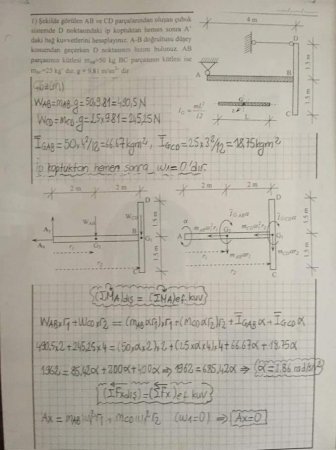 1) Şekilde görülen AB ve CD parçalarından oluşan çubuk
sistemde D noktasındaki ip koptuktan hemen sonra A'
daki bağ kuvvetlerini hesaplayınız. A-B doğrultusu düşey
konumdan geçerken D noktasının hızını bulunuz. AB
parçasının kütlesi mAB=50 kg BC parçasının kütlesi ise
=25 kg' dır. g = 9,81 m/sn² dir.
4 m
D
A
B
1.5 m
1.5 m
C
G
L
WAB=mAB.g=50x9.81=490.5N
WCD=mCD.g=25x9.81=245.25N
IGAB=50x4²/12=66.67kgm², IGCD=25x3²/12=18.75kgm²
ip koptuktan hemen sonra w1=0'dır.
2 m 2 m
2 m 2 m
D
D
WAB
A
B
G1
G2
1.5 m
1.5 m
r1
r2
C
(ΣMA)dış = (ΣMA)ef.kuv
WABxr1+WCDxr2=(mABαr1)r1+(mCDαr2)r2+IGABα+IGCDα
490.5x2+245.25x4=(50xαx2)x2+(25xαx4)x4+66.67α+18.75α
1962=85.42α+200α+400α ⇒ 1962=685.42α ⇒ α=2.86 rad/sn²
(ΣFxdış)=(ΣFx)ef.kuv
Ax=mABw²r1+mCDw²r2 (w1=0) ⇒ Ax=0